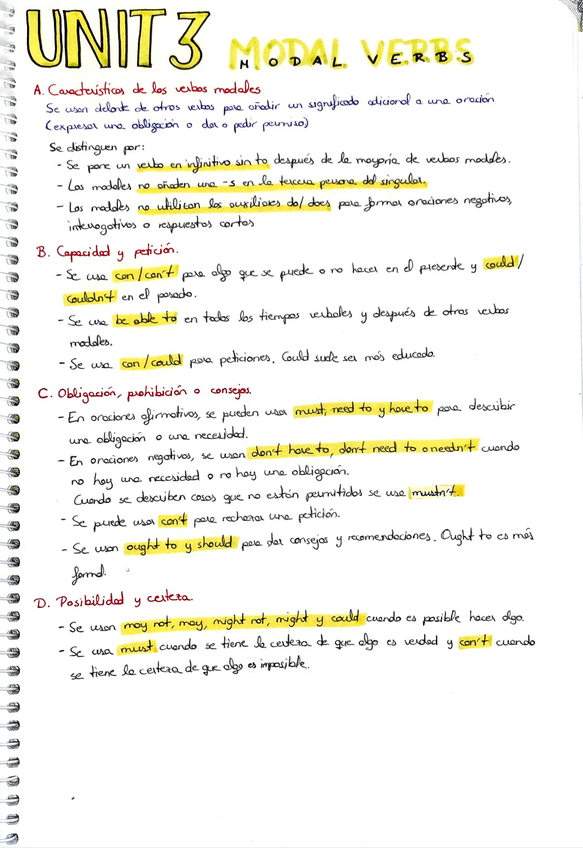 UNIT 3 MODAL VERBS
A. Características de los verbos modales
Se usan delante de otros verbos para añadir un significado adicional a una oración
(expresar una obligación o dar o pedir permiso)
Se distinguen por:
- Se pone un verbo en infinitivo sin to después de la mayoría de verbos modales.
- Los modales no añaden una -s en la tercera persona del singular.
- Los modales no utilizan los auxiliares do/does para formar oraciones negativas,
interrogativas o respuestas cortas
B. Capacidad y petición.
- Se usa can/can't para algo que se puede o no hacer en el presente y could/
couldn't en el pasado.
- Se usa be able to en todos los tiempos verbales y después de otros verbos
modales.
- Se usa can/could para peticiones. Could suele ser más educado.
C. Obligación, prohibición o consejos.
- En oraciones afirmativas, se pueden usar must, need to y have to para describir
una obligación o una necesidad.
- En oraciones negativas, se usan don't have to, don't need to o needn't cuando
no hay una necesidad o no hay una obligación.
Cuando se describen cosas que no están permitidas se usa mustn't.
- Se puede usar can't para rechazar una petición.
- Se usan ought to y should para dar consejos y recomendaciones. Ought to es más
formal.
D. Posibilidad y certeza.
- Se usan may not, may, might not, might y could cuando es posible hacer algo.
- Se usa must cuando se tiene la certeza de que algo es verdad y can't cuando
se tiene la certeza de que algo es imposible.